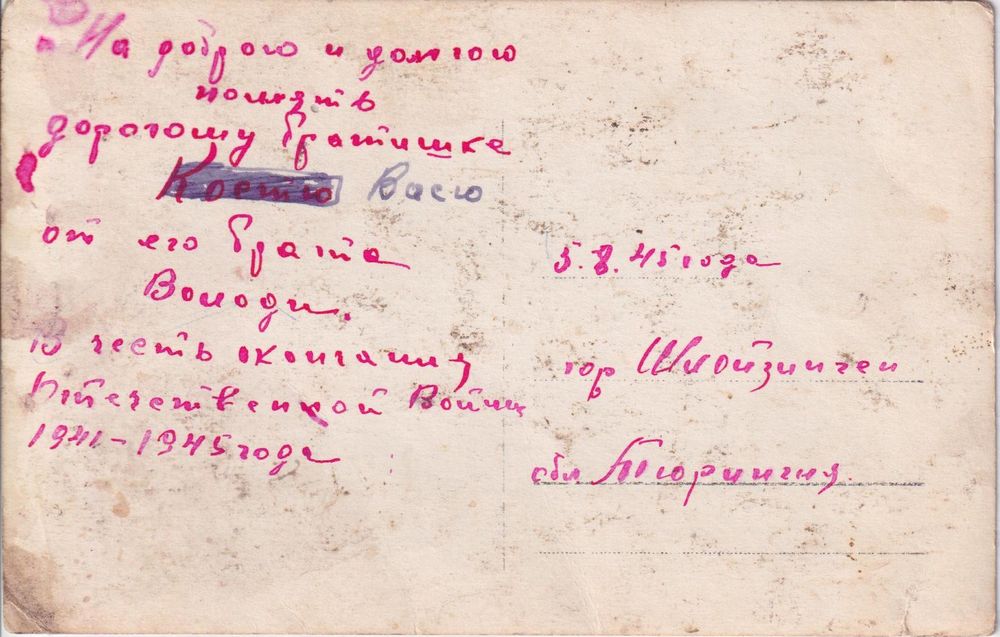 На доброю и долгою
помять
дорогому братишке
Костю Васю
от его брата
Володи.
В честь окончания
Отечественной Войны
1941-1945 года
5.8.45 года
гор Шлойзинген
обл Тюрингия.